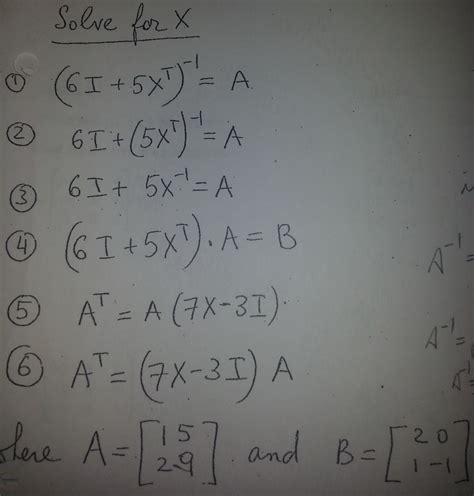 Solve for X
① (6I + 5Xᵀ)⁻¹ = A
② 6I + (5Xᵀ)⁻¹ = A
③ 6I + 5X⁻¹ = A
④ (6I + 5Xᵀ) . A = B
A⁻¹ =
⑤ Aᵀ = A (7X - 3I) .
A⁻¹ =
⑥ Aᵀ = (7X - 3I) A
where A = [1 5
2 -9] . and B = [2 0
1 -1]